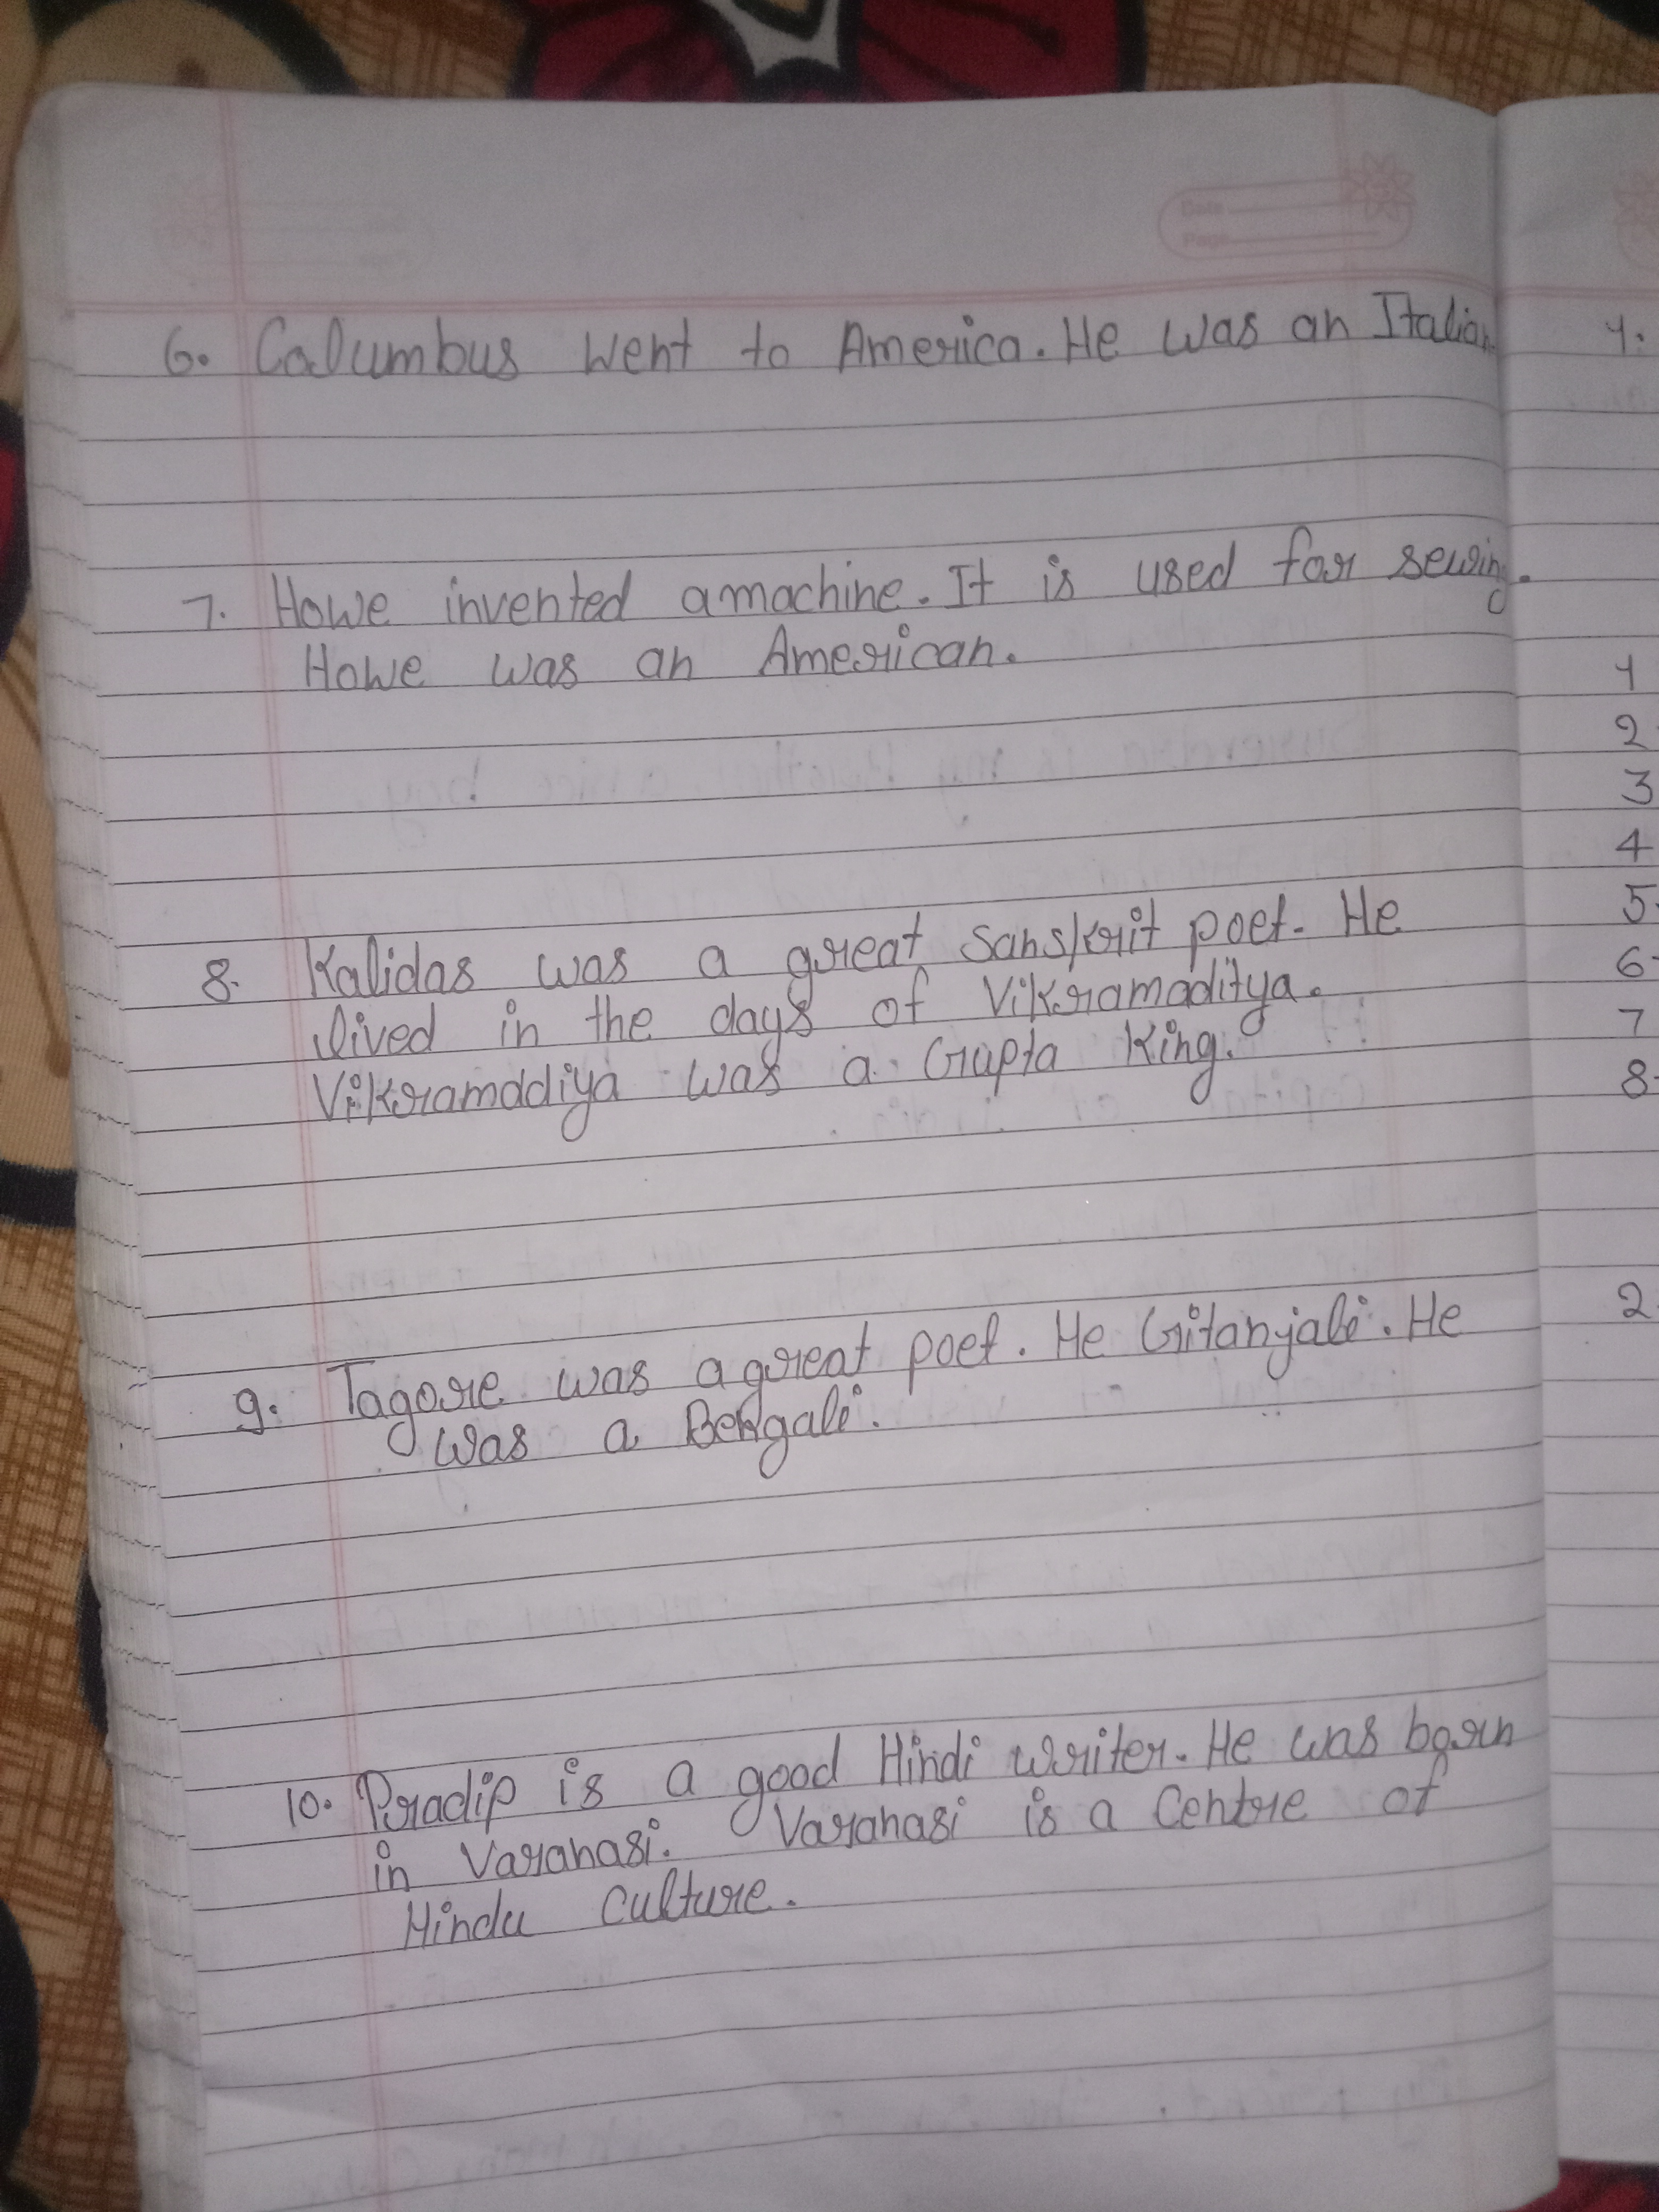 Date
Page
6. Columbus went to America. He was an Italian
7. Howe invented a machine. It is used for sewing.
Howe was an American.
8. Kalidas was a great Sanskrit poet. He
lived in the days of Vikramaditya.
Vikramaddiya was a Gupta King.
9. Tagore was a great poet. He Gitanjali. He
was a Bengali.
10. Pradip is a good Hindi writer. He was born
in Varanasi. Varanasi is a Centre of
Hindu culture.
1.
1
2
3
4
5.
6
7
8
2